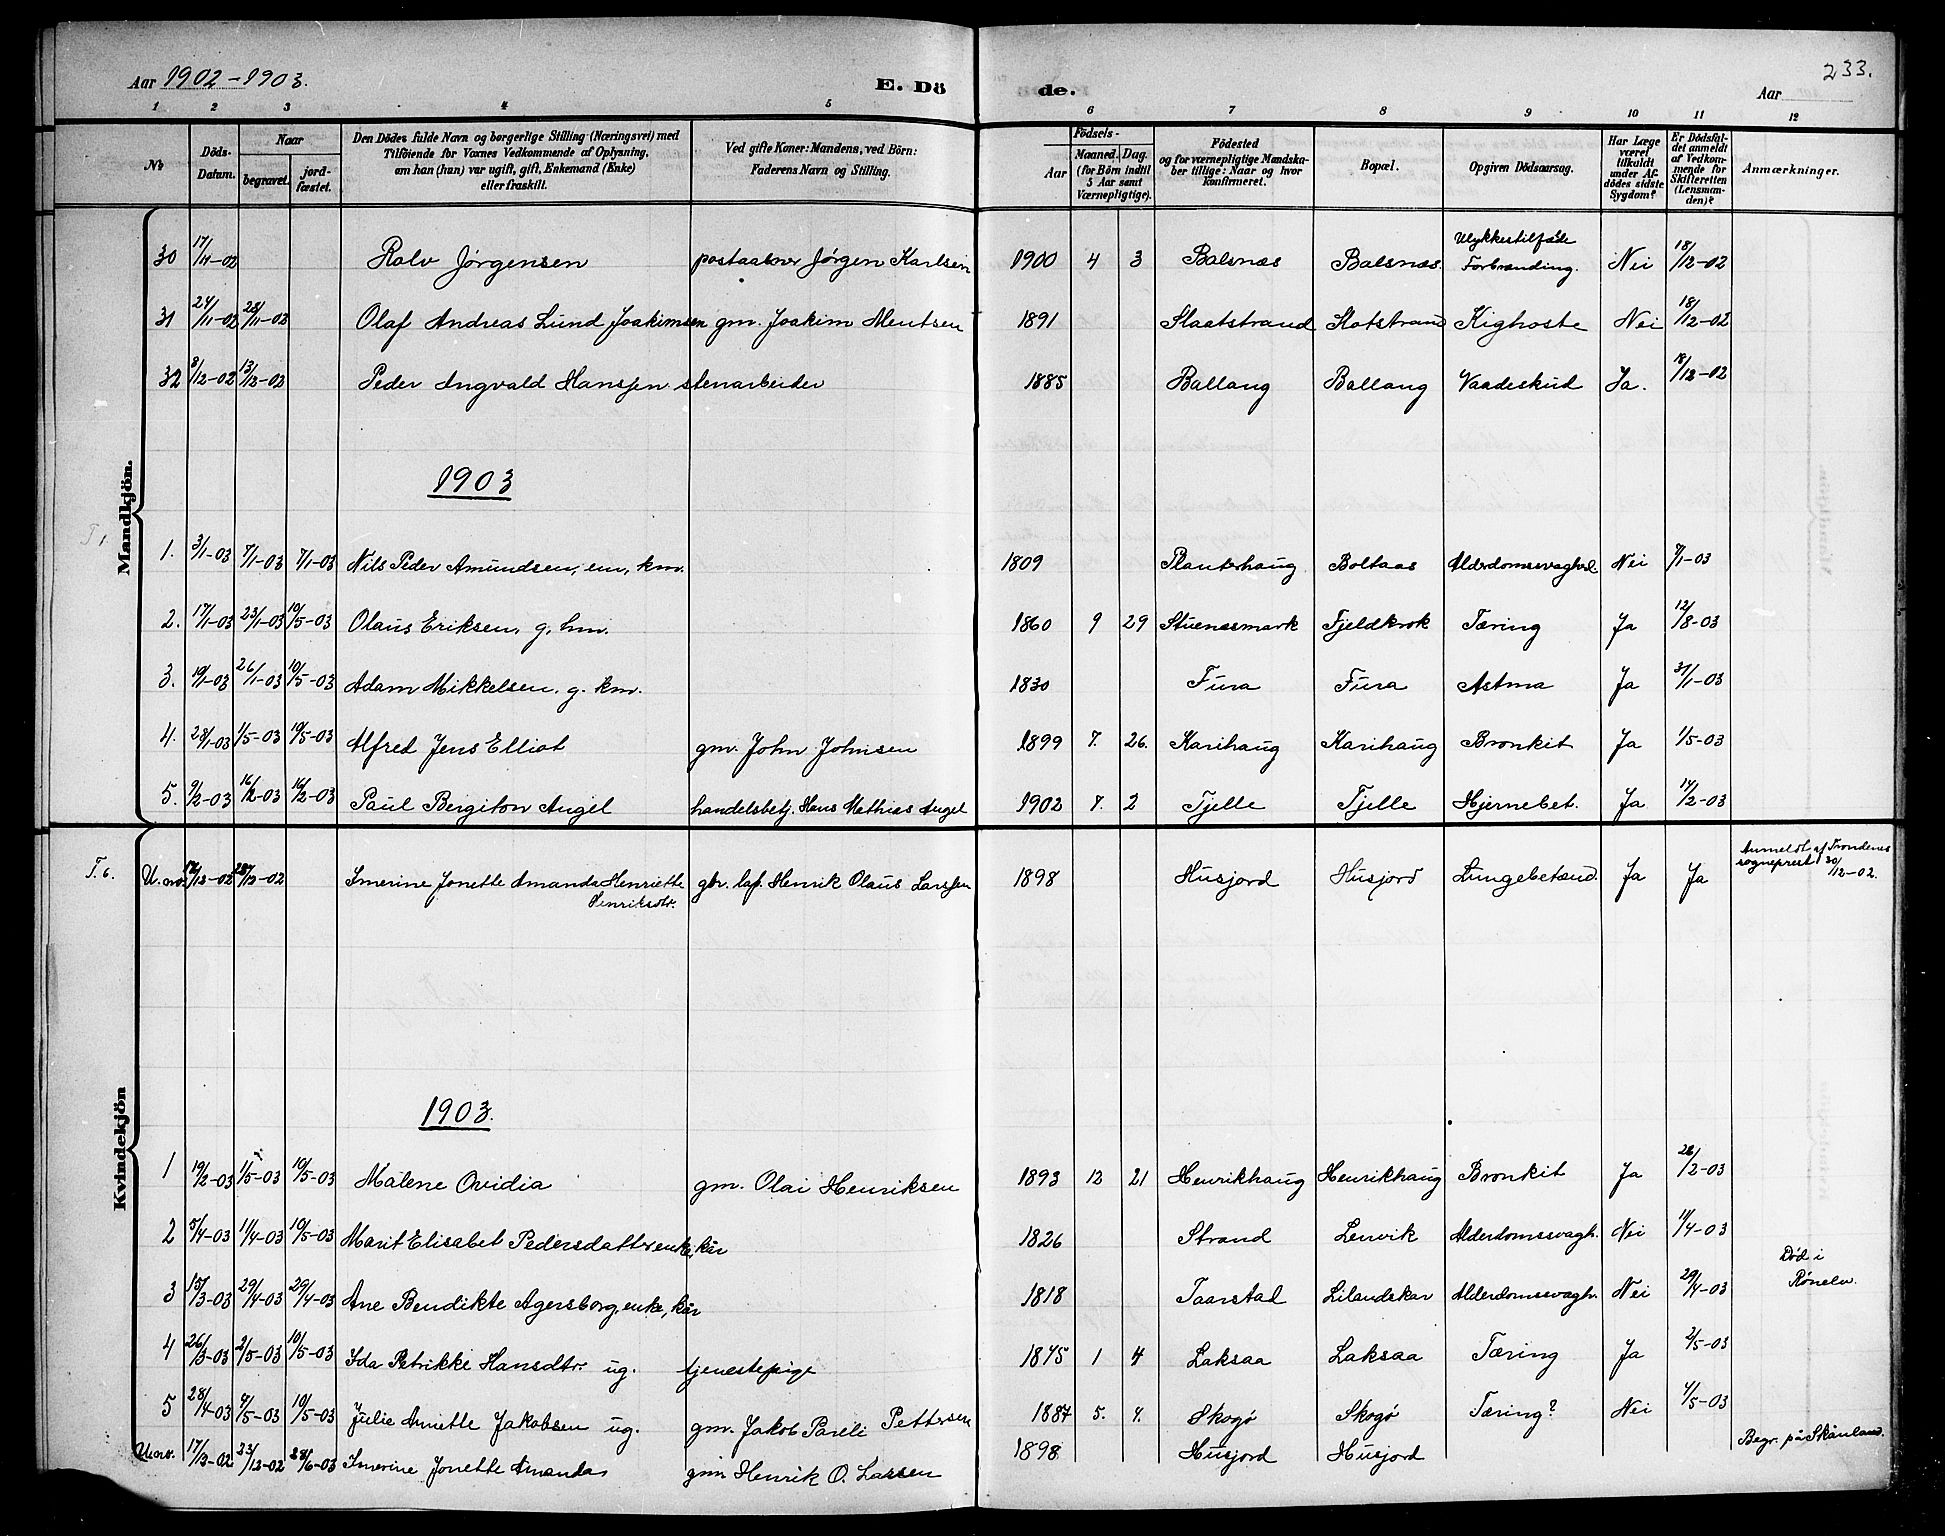 Aar 1902-1903.
E. Dö
de.
233.
Aar
1 2 3 4 5 6 7 8 9 10 11 12
No
Döds-Datum.
Naar
begravet.
jord-fæstet.
Den Dödes fulde Navn og borgerlige Stilling (Næringsvei) med
Tilföiende for Voxnes Vedkommende af Oplysning,
om han (hun) var ugift, gift, Enkemand (Enke)
eller fraskilt.
Ved gifte Koner: Mandens, ved Börn:
Faderens Navn og Stilling.
Födsels-
Aar
Maaned. Dag.
(for Börn indtil
5 Aar samt
Værnepligtige).
Födested
og for værnepligtige Mandska-
ber tillige: Naar og hvor
konfirmeret.
Bopæl.
Opgiven Dödsaarsag.
Har Læge
været
tilkaldt
under Af-
dödes sidste
Sygdom?
Er Dödsfal-
det anmeldt
af Vedkom-
mende for
Skifteretten
(Lensman-
den)?
Anmærkninger.
Mandkjön.
30 17/11-02 Rolv Jørgensen postaabner Jørgen Karlsen 1900 4 3 Balsnæs Balsnæs. Ulykkestilfælde Forbrænding. Nei 18/12-02
31 24/11-02 28/11-02 Olaf Andreas Lund Joakimsen gm. Joakim Mentsen 1891 Slaatstrand Slotstrand Kighoste Nei 18/12-02
32 8/12-02 13/12-02 Peder Ingvald Hansen stenarbeider 1885 Ballang Ballang Vaadeskud Ja. 18/12-02
1903
T 1
1. 3/1-03 7/1-03 7/1-03 Nils Peder Amundsen, em, km. 1809 Planterhaug Boltaas Alderdomssvaghed Nei 7/1-03
2. 17/1-03 23/1-03 10/5-03 Olaus Eriksen, g. hm. 1860 9 29 Stuenesmark Fjeldkrok Tæring Ja 12/8-03
3. 19/1-03 26/1-03 10/5-03 Adam Mikkelsen, g. km. 1830 Fura Fura Astma Ja 31/1-03
4. 28/1-03 1/5-03 10/5-03 Alfred Jens Elliot gm. John Johnsen 1899 7. 26. Karihaug Karihaug Bronkit Ja 1/5-03
5. 9/2-03 16/2-03 16/2-03 Paul Bergiton Angel handelsbetj. Hans Mathias Angel 1902 7. 2 Tjelle Tjelle Hjernebet. Ja 17/2-03
Kvindekjön
T. 6. U. no. 17/12-02 23/12-02 Imerine Jonette Amanda Henriette Henriksdtr. gbr. laf. Henrik Olaus Larssen 1898 Husjord Husjord Lungebetænd. Ja Ja Anmeldt af Trondenes sogneprest 30/12-02.
1903.
1 19/2-03 1/5-03 10/5-03 Malene Ovidia gm. Olai Henriksen 1893 12 21 Henrikhaug Henrikhaug Bronkit Ja 28/2-03
2 5/4-03 11/4-03 10/5-03 Marit Elisabet Pedersdatter enke, kår 1826 Strand Lenvik Alderdomssvagh. Nei 11/4-03
3 15/3-03 29/4-03 29/4-03 Ane Bendikte Agersborg, enke, kår 1818 Taarstad Lilandskar Alderdomssvagh. Nei 29/4-03 Död i Rønelv.
4 26/3-03 2/5-03 10/5-03 Ida Petrikke Hansdtr. ug. tjenestepige 1875 1 4 Laksaa Laksaa Tæring Ja 2/5-03
5 28/4-03 4/5-03 10/5-03 Julie Anette Jakobsen ug. gm. Jakob Pareli Pettersen 1887 5. 7. Skogø Skogø Tæring? Nei 4/5-03
U. nr. 17/13-02. 23/12-02 28/6-03 Imerine Jonette Amanda gm. Henrik O. Larsen 1898 Husjord Husjord Begr. på Skånland.